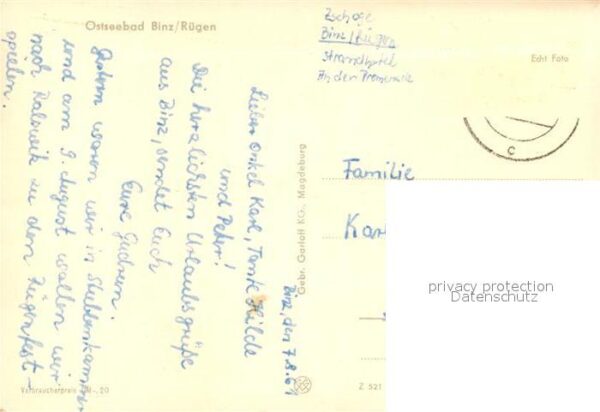 Ostseebad Binz/Rügen
Zschoge
Binz/Rügen
Strandhotel
An der Promenade
Echt Foto
Binz, den 7.8.61
Lieber Onkel Karl, Tante Hilde
und Peter!
Die herzlichsten Urlaubsgrüße
aus Binz, sendet Euch
Eure Gudrun.
Gestern waren wir in Stubbenkammer
und am 9. August wollen wir
nach Ralswiek zu den Rügenfest-
spielen.
Gebr. Garloff KG., Magdeburg
C
Familie
Kar
privacy protection
Datenschutz
Verbraucherpreis DM -,20
Z 521